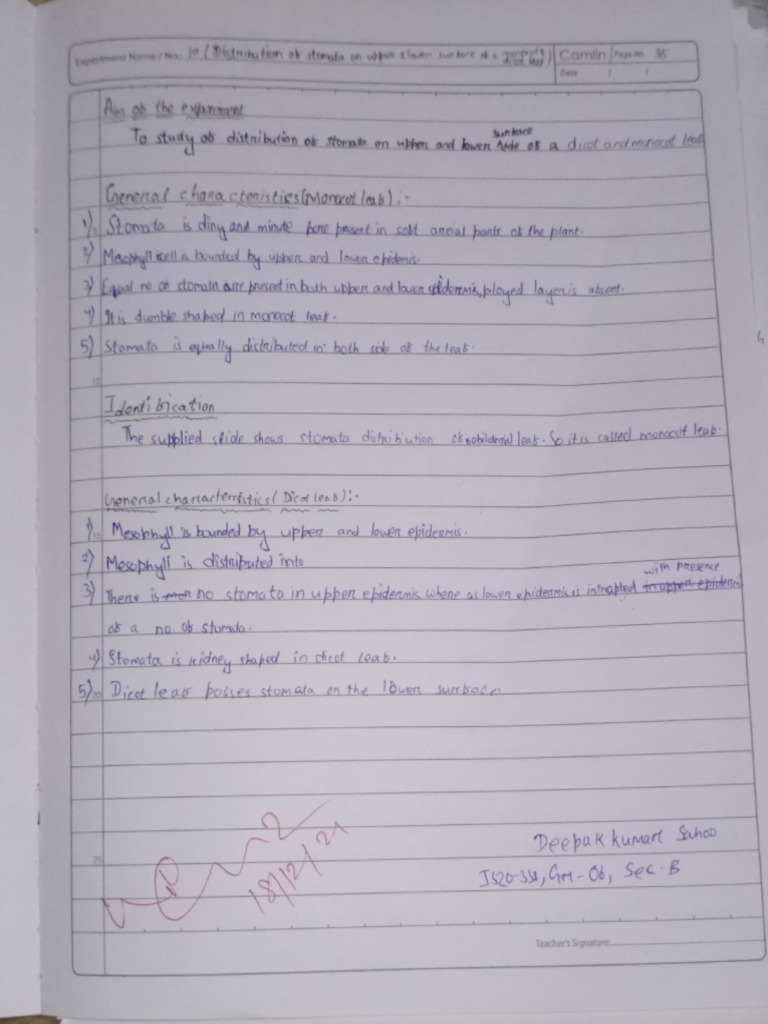 Experiment Name / No.: 10 (Distribution of stomata on upper & lower surface of a monocot & dicot leaf) Camlin Page No. 35
Date / /
Aim of the experiment
surface
To study of distribution of stomata on upper and lower side of a dicot and monocot leaf
General characteristics (Monocot leaf) :-
1) Stomata is diny and minute pore present in soft aerial parts of the plant.
2) Mesophyll cell is bounded by upper and lower epidemis.
3) Equal no of stomata are present in both upper and lower epidermis, ployed layer is absent.
4) It is dumble shaped in monocot leaf.
5) Stomata is equally distributed in both side of the leaf.
10
Identification
The supplied slide shows stomata distribution of isobilateral leaf. So it is called monocot leaf.
General characterristics (Dicot leaf) :-
1) Mesophyll is bounded by upper and lower epidermis.
15
2) Mesophyll is distributed into
with presence
3) There is no stomata in upper epidermis where as lower epidermis is intrapted in upper epiderm
of a no. of stomata.
4) Stomata is kidney shaped in dicot leaf.
5) Dicot leaf posses stomata on the lower surface.
20
25
18/12/21
Deepak kumar Sahoo
IS20-338, Gr1-06, Sec-B
Teacher's Signature: